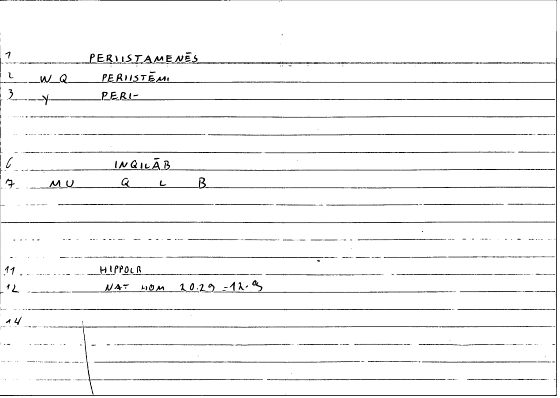 1 PERIISTAMENĒS
2 W Q PERIISTĒMI
3 Y PERI-
6 INQILĀB
7 MU Q L B
11 HIPPOCR
12 NAT HOM 20.29 -12.9
14